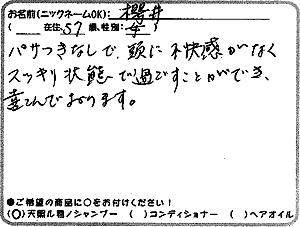 お名前(ニックネームOK): 櫻井
( 在住 57 歳、性別: 女 )
パサつきなしで、頭に不快感がなく
スッキリ状態で過ごすことができ、
喜んでおります。
●ご希望の商品に○をお付けください!
(○)天照ル恩ノシャンプー ( )コンディショナー ( )ヘアオイル